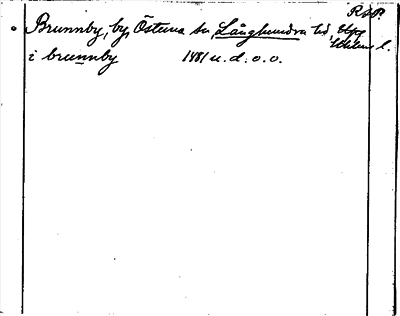 RAP.
Brunnby, by, Östuna sn, Långhundra hd, Upps
l.
i brunnby 1481 u.d. o.o.